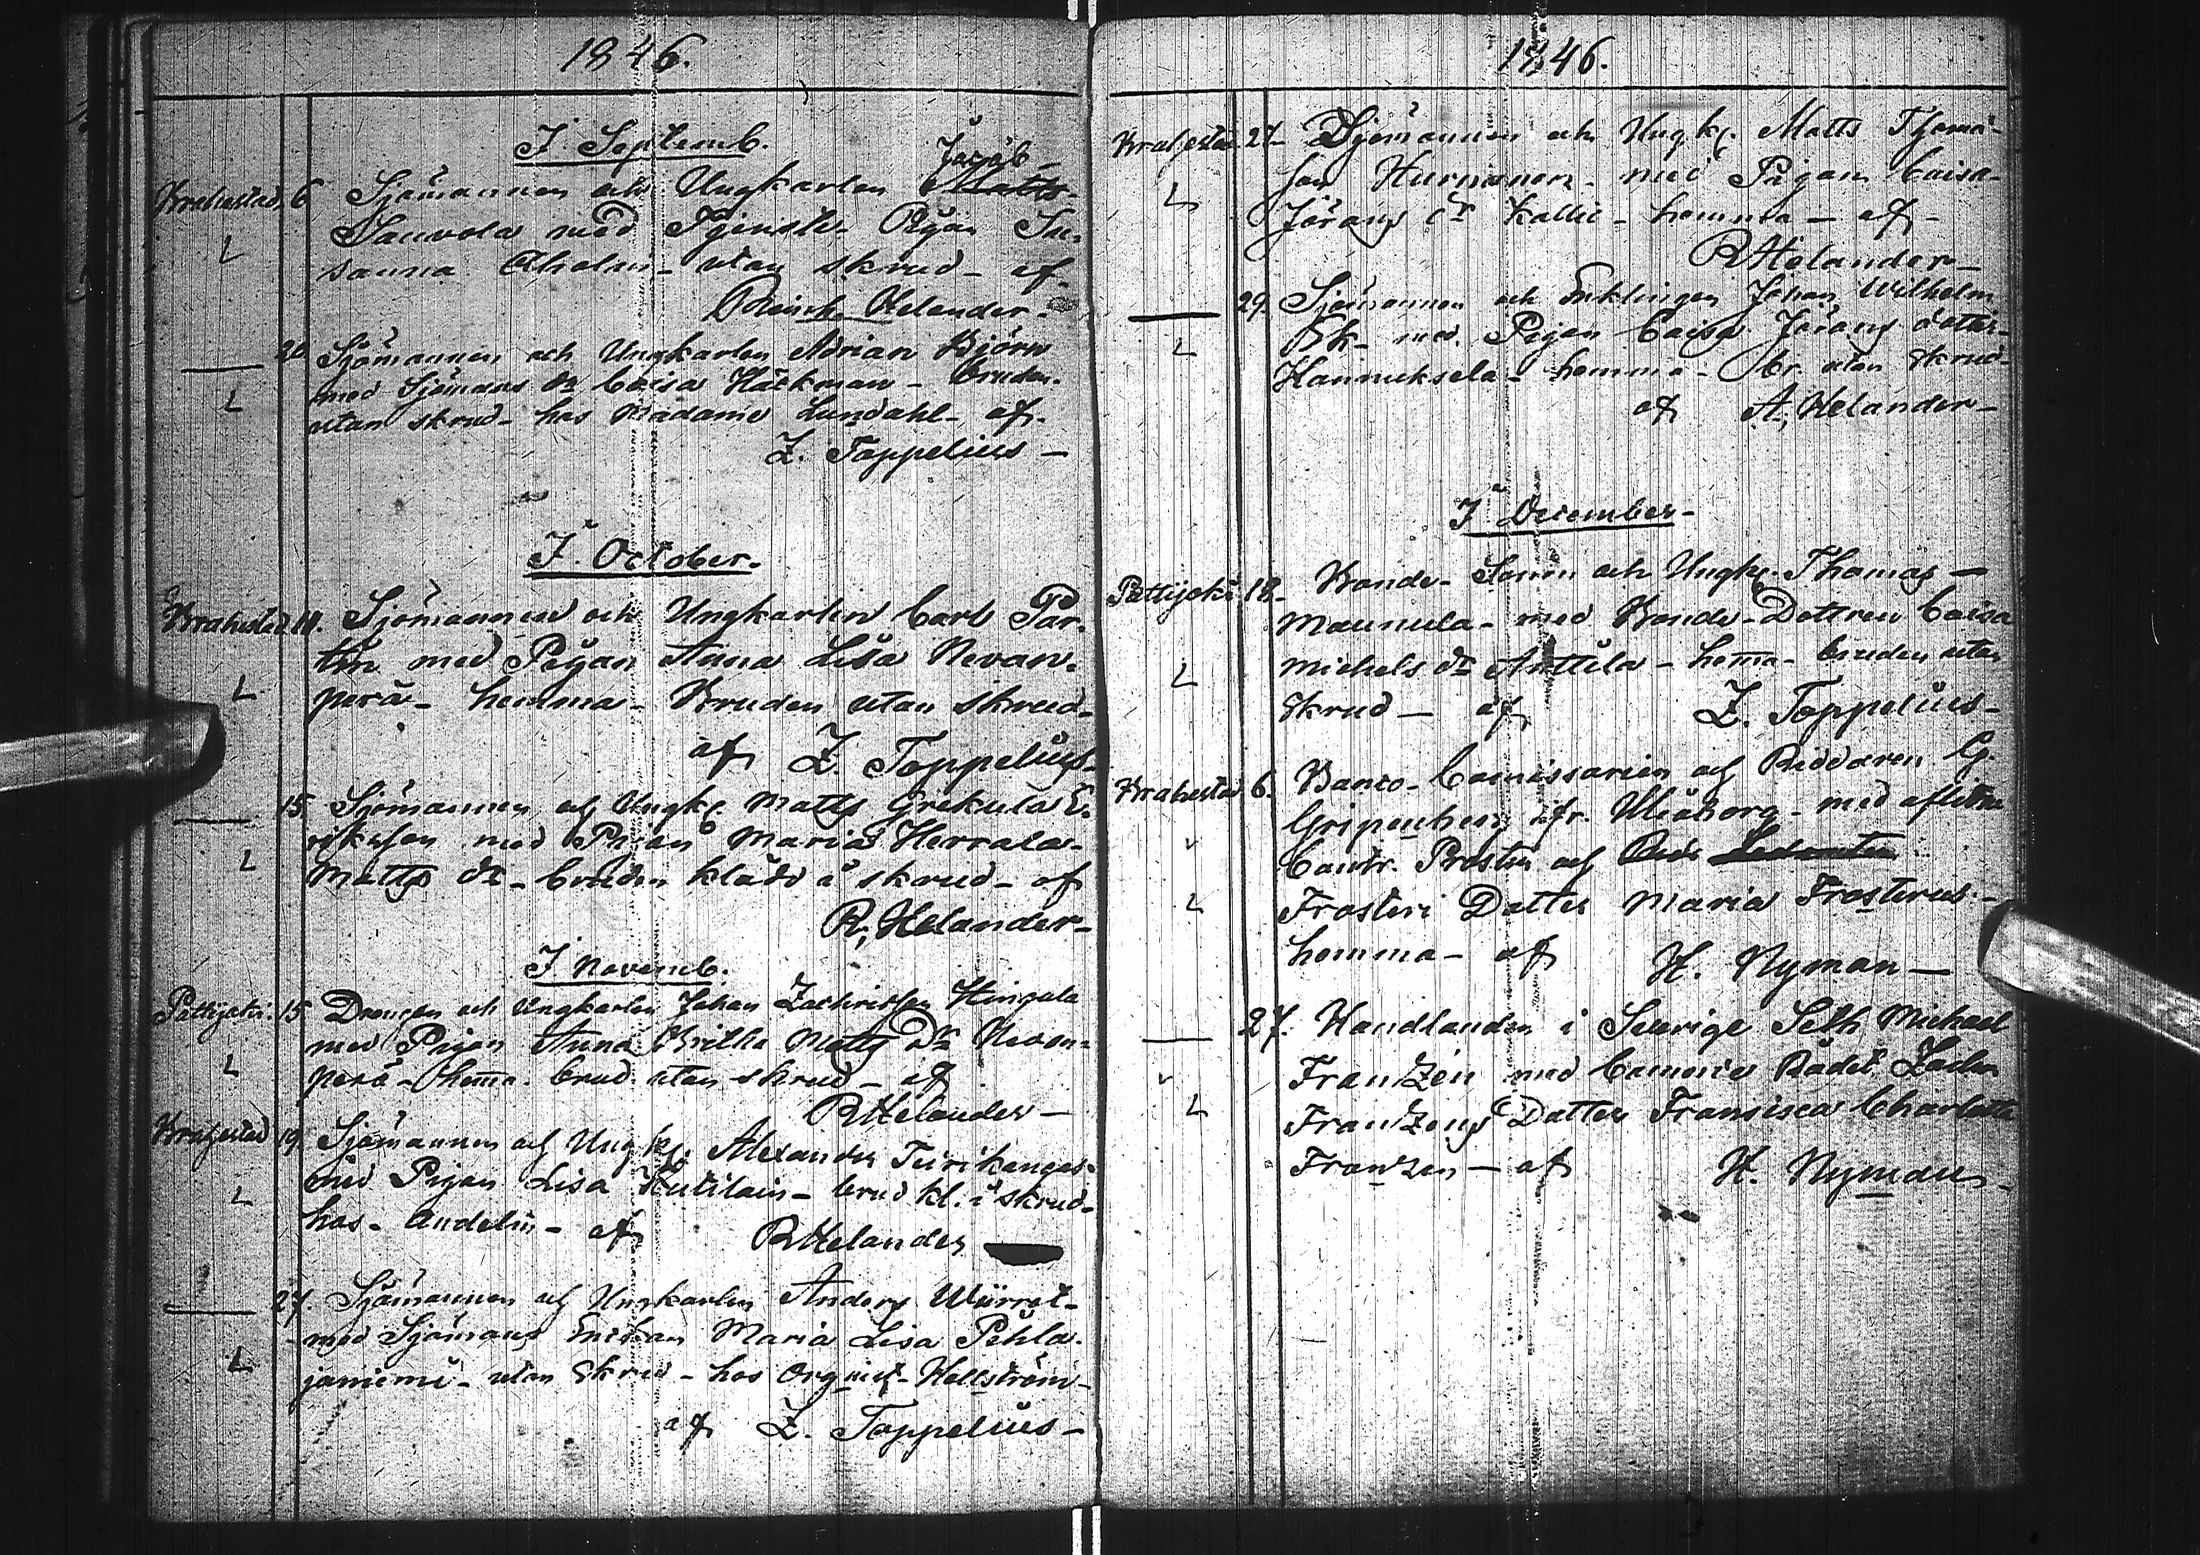 1846.
I Septemb.
Jacob
Brahestad 6 Sjömannen och Ungkarlen Matts
Sauvola med Tjenste Pigan Su-
sanna Aholm - utan skrud - af
Helander.
20 Sjömannen och Ungkarlen Adrian Björn
med Sjömans dr Caisa Häckman - bruden
utan skrud - hos Madame Lundahl - af
Z. Toppelius -
I October.
Brahestad 11. Sjömannen och Ungkarlen Carl Par-
tin med Pigan Anna Lisa Nevan-
perä - hemma - Bruden utan skrud -
af Z. Toppelius -
15 Sjömannen och Ungk. Matts Grekula E-
riksson med Pigan Maria Herrala
Matts dr - bruden klädd i skrud - af
R. Helander -
I Novemb.
Pattijoki. 15 Drengen och Ungkarlen Johan Zachrisson Hingala
med Pigan Anna Britha Matts Dr Nevan-
perä - hema. brud utan skrud - af
R Helander -
Brahestad 19. Sjömannen och Ungk. Alexander Teirikangas
med Pigan Lisa Kutilain - brud kl. i skrud -
hos Andelin - af R Helander
27. Sjömannen och Ungkarlen Anders
med Sjömans Enkan Maria Lisa Pehla-
janiemi - utan skrud - hos Orgnist Hellström -
af Z. Toppelius -
1846.
Brahestad 27 - Sjömannen och Ungk. Matts Thoma-
son Hurnanen - med Pigan Caisa
Jörans dr Kallie - hemma - af -
R Helander -
29. Sjömannen och Enklingen Johan Wilhelm
Ek - med Pigan Caisa Jörans dotter
Hannuksela - hemma - br. utan skrud -
af A. Helander -
I December -
Pattijoki 18 - Bonde - Sonen och Ungk. Thomas -
Maunula - med Bonde - Dottren Caisa
Michels dr Anttila - hema - bruden utan
skrud - af Z. Toppelius -
Brahestad 6. Banco - Comissarien och Riddaren G.
Gripenberg ifr. Uleåborg - med aflidne
Contr. Prosten och
Frosteri Dotter Maria Frosterus -
hemma - af H. Nyman -
27. Handlanden i Sverige Seth Michael
Franzén med Camerie Rådet Zach.
Franzens Dotter Fransisca Charlotta
Franzen - af H. Nyman -